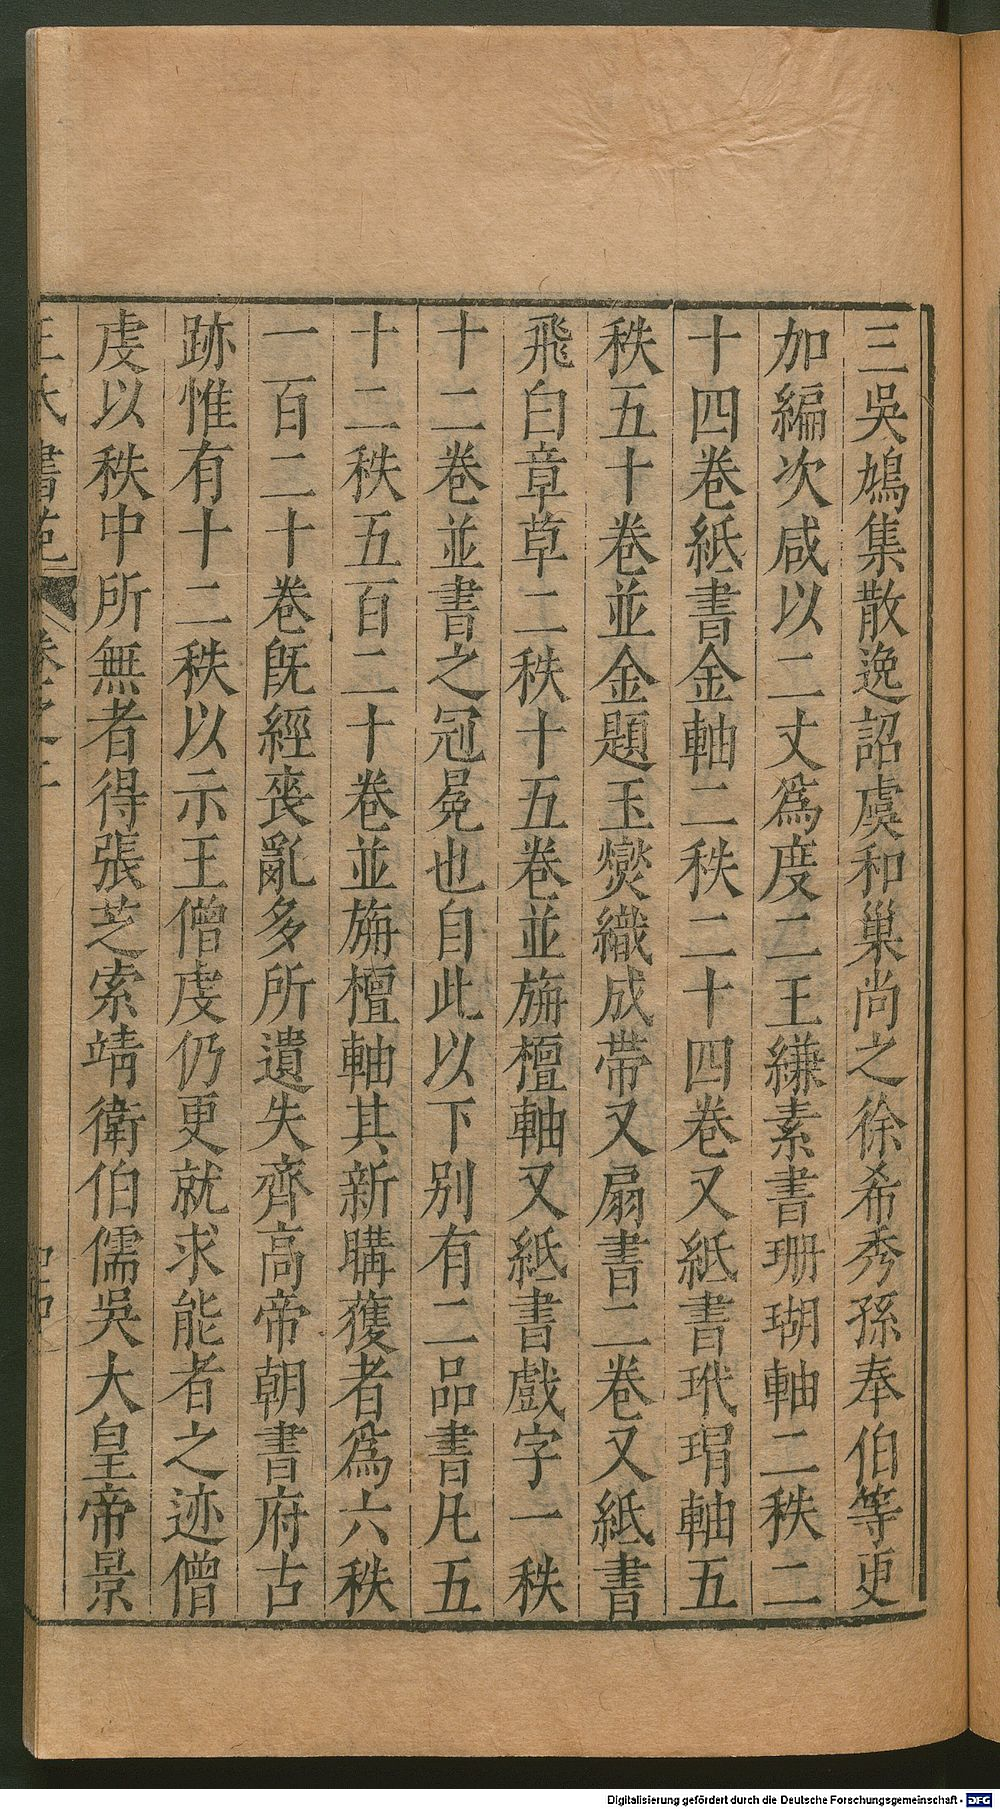 三吳鳩集散逸詔虞和巢尚之徐希秀孫奉伯等更
加編次咸以二丈爲度二王縑素書珊瑚軸二秩二
十四卷紙書金軸二秩二十四卷又紙書玳瑁軸五
秩五十卷並金題玉爕織成帶又扇書二卷又紙書
飛白章草二秩十五卷並旃檀軸又紙書戲字一秩
十二卷並書之冠冕也自此以下别有二品書凡五
十二秩五百二十卷並旃檀軸其新購獲者爲六秩
一百二十卷旣經喪亂多所遺失齊高帝朝書府古
跡惟有十二秩以示王僧虔仍更就求能者之迹僧
虔以秩中所無者得張芝索靖衛伯儒吳大皇帝景
王氏書苑 卷之
Digitalisierung gefördert durch die Deutsche Forschungsgemeinschaft - DFG